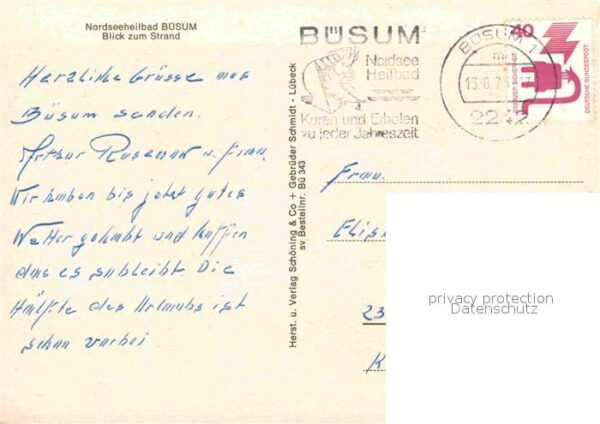 Nordseeheilbad BÜSUM
Blick zum Strand
Herzliche Grüsse aus
Büsum senden.
Arthur Rosenau u. Frau.
Wir haben bis jetzt gutes
Wetter gehabt und hoffen
das es so bleibt. Die
Hälfte des Urlaubs ist
schon vorbei
Herst. u. Verlag Schöning & Co + Gebrüder Schmidt - Lübeck
sv Bestellnr. Bü 343
BÜSUM
Nordsee
Heilbad
Kuren und Erholen
zu jeder Jahreszeit
BÜSUM 1
m
13.6.75
2242
40
DEUTSCHE BUNDESPOST
Frau.
Elis
23
K
privacy protection
Datenschutz